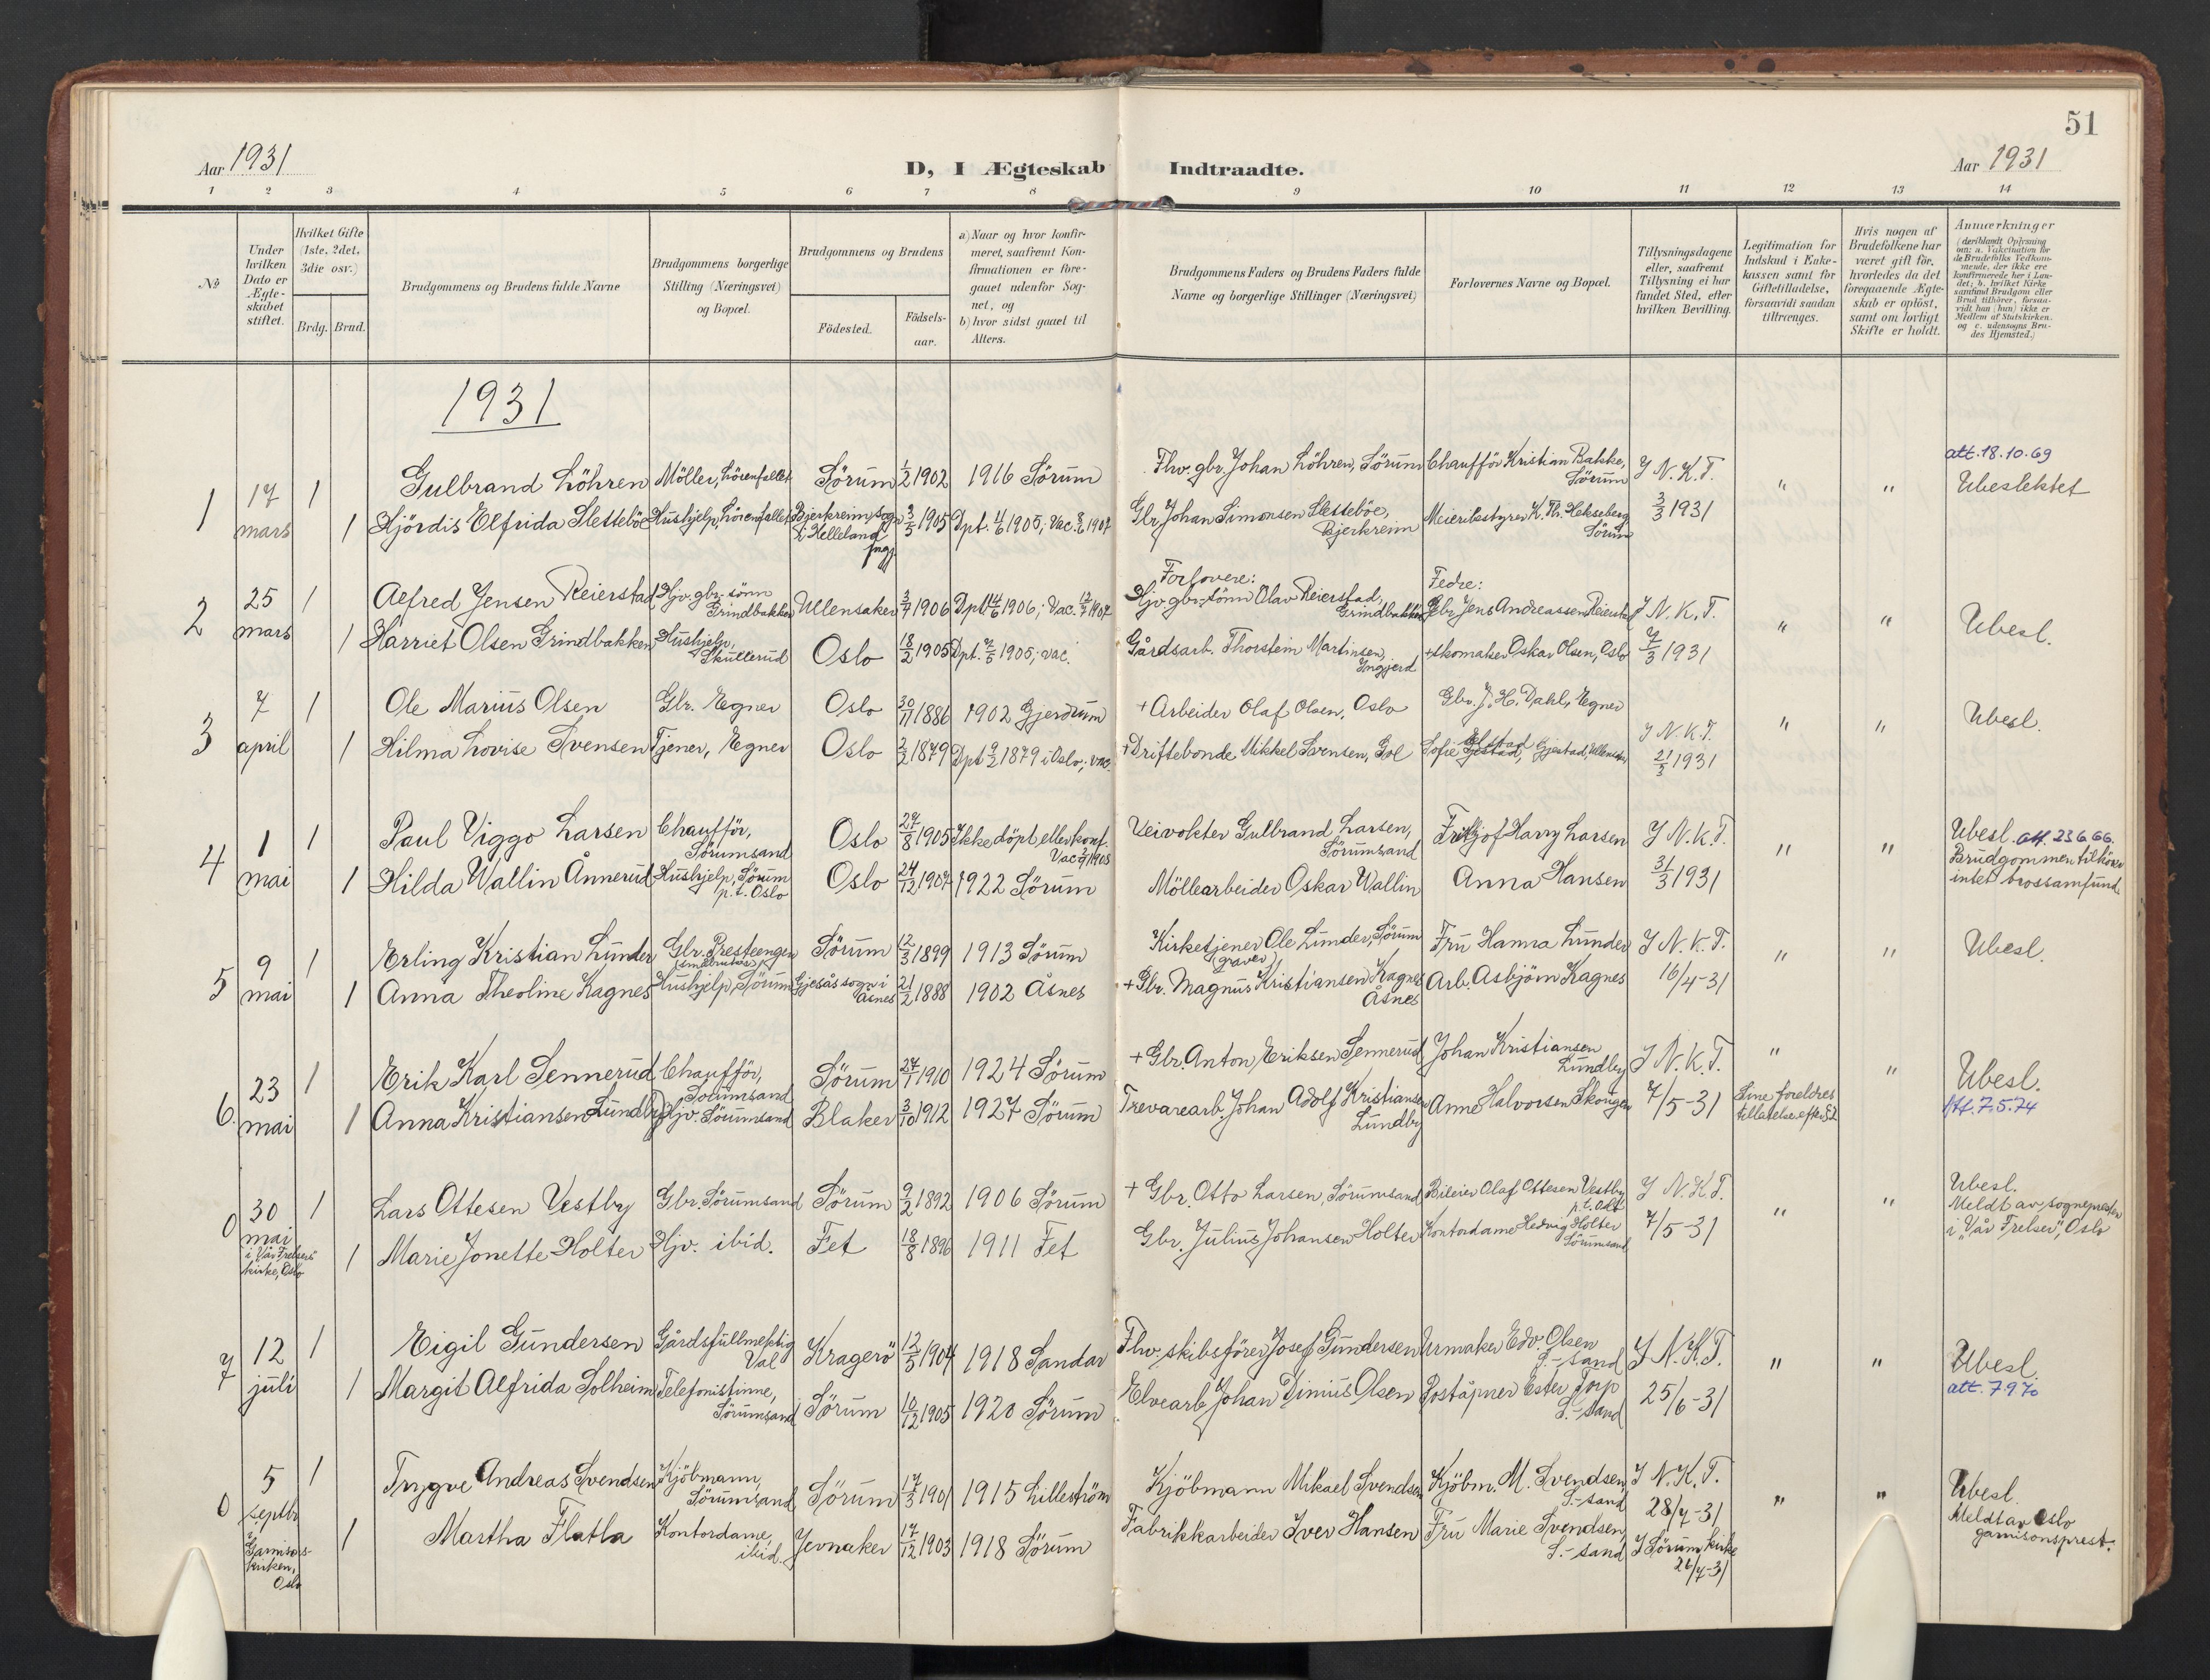 51
Aar 1931
D, I Ægteskab Indtraadte.
Aar 1931
1 2 3 4 5 6 7 8 9 10 11 12 13 14
No
Under
hvilken
Dato er
Ægte-
skabet
stiftet.
Hvilket Gifte
(1ste, 2det,
3die osv.)
Brdg. Brud.
Brudgommens og Brudens fulde Navne
Brudgommens borgerlige
Stilling (Næringsvei)
og Bopæl.
Brudgommens og Brudens
Födested.
Födsels-
aar.
a) Naar og hvor konfir-
meret, saafremt Kon-
firmationen er fore-
gaaet udenfor Sog-
net, og
b) hvor sidst gaaet til
Alters.
Brudgommens Faders og Brudens Faders fulde
Navne og borgerlige Stillinger (Næringsvei)
Forlovernes Navne og Bopæl.
Tillysningsdagene
eller, saafremt
Tillysning ei har
fundet Sted, efter
hvilken Bevilling.
Legitimation for
Indskud i Enke-
kassen samt for
Giftetilladelse,
forsaavidt saadan
tiltrænges.
Hvis nogen af
Brudefolkene har
været gift för,
hvorledes da det
foregaaende Ægte-
skab er oplöst,
samt om lovligt
Skifte er holdt.
Anmærkninger
(deriblandt Oplysning
om: a. Vakcination for
de Brudefolks Vedkom-
mende, der ikke ere
konfirmerede her i Lan-
det; b. hvilket Kirke-
samfund Brudgom eller
Brud tilhörer, forsaa-
vidt han (hun) ikke er
Medlem af Statskirken.
og c. udensogns Bru-
des Hjemsted.)
1931
1
17
mars
1
Gulbrand Löhren
Möller, Lörenfallet
Sörum
1/2 1902
1916 Sörum
Fhv. gbr. Johan Löhren, Sörum
Chaufför Kristian Bakke,
Sörum
I N. K. T.
3/3 1931
"
"
att. 18.10.69
Ubeslektet
1
Hjördis Elfrida Slettebö
Hushjelp, Lörenfallet
Bjerkreim sogn
i Helleland
prgj.
3/5 1905
Dpt. 4/6 1905; Vac. 8/6 1907
Gbr. Johan Simonsen Sletteböe,
Bjerkreim
Meieribestyrer K. Th. Hekseberg
Sörum
2
25
mars
1
Alfred Jensen Reierstad
Hjv. gbr. sönn
Grindbakken
Ullensaker
3/4 1906
Dpt. 4/6 1906; Vac. 12/7 1907
Forlovere:
Hjv. gbr. sönn Olav Reierstad,
Grindbakken
Fedre:
Gbr. Jens Andreassen Reierstad
I N. K. T.
7/3 1931
"
"
Ubesl.
1
Harriet Olsen Grindbakken
Hushjelp,
Skullerud
Oslo
18/2 1905
Dpt. 7/5 1905; vac.
Gårdsarb. Thorstein Martinsen,
Ingjerd
+ skomaker Oskar Olsen, Oslo
3
7
april
1
Ole Marius Olsen
Gbr. Egner
Oslo
30/11 1886
1902 Gjerdrum
+ Arbeider Olaf Olsen, Oslo
Gbr. J. H. Dahl, Egner
I N. K. T.
21/3 1931
"
"
Ubesl.
1
Hilma Lovise Svensen
Tjener, Egner
Oslo
2/2 1879
Dpt 9/2 1879 i Oslo; vac.
+ Driftebonde Mikkel Svensen, Gol
Sofie Gjestad, Ullensaker
4
1
mai
1
Paul Viggo Larsen
Chaufför,
Sörumsand
Oslo
27/8 1905
Ikke döpt eller konf.
Veivokter Gulbrand Larsen,
Sörumsand
Fritjof Harry Larsen
I N. K. T.
31/3 1931
"
"
Ubesl. att. 23 6 66.
Brudgommen tilhörer
intet trossamfund.
1
Hilda Wallin Ånnerud
Hushjelp, Sörum
p.t. Oslo
Oslo
24/12 1907
1922 Sörum
Möllearbeider Oskar Wallin
Anna Hansen
5
9
mai
1
Erling Kristian Lunder
Gbr. Presteengen
(småbruker)
Sörum
12/3 1899
1913 Sörum
Kirketjener Ole Lunder, Sörum
(graver)
Fru Hanna Lunder
I N. K. T.
16/4-31
"
"
Ubesl.
1
Anna Theoline Kagnes
Hushjelp, Sörum
Gjesås sogn i
Åsnes
21/2 1888
1902 Åsnes
+ Gbr. Magnus Kristiansen Kagnes
Åsnes
Arb. Asbjörn Kagnes
6.
23
mai
1
Erik Karl Sennerud
Chaufför,
Sörumsand
Sörum
27/1 1910
1924 Sörum
+ Gbr. Anton Eriksen Sennerud
Johan Kristiansen
Lundby
I N. K. T.
7/5-31
"
Sine foreldres
tillatelse efter §2
"
Ubesl.
Att. 7.5.74
1
Anna Kristiansen Lundby
Hjv. Sörumsand
Blaker
3/10 1912
1927 Sörum
Trevarearb. Johan Adolf Kristiansen
Lundby
Anne Halvorsen Skougen
0
30
mai
i Vår Frelsers
kirke, Oslo
1
Lars Ottesen Vestby
Gbr. Sörumsand
Sörum
9/2 1892
1906 Sörum
+ Gbr. Otto Larsen, Sörumsand
Bileier Olaf Ottesen Vestby
p.t. Odt
I N. K. T.
7/5-31
"
"
Ubesl.
Meldt av sognepresten
i "Vår Frelser", Oslo
1
Marie Jonette Holter
Hjv. ibid.
Fet
18/8 1896
1911 Fet
Gbr. Julius Johansen Holter
Kontordame Hedvig Holter
Sörumsand
7
12
juli
1
Eigil Gundersen
Gårdsfullmektig
Val
Kragerö
12/5 1904
1918 Sandar
Fhv. skibsförer Josef Gundersen
Urmaker Edv. Olsen
S.-sand
I N. K. T.
25/6-31
"
"
Ubesl.
att. 7 9 70
1
Margit Alfrida Solheim
Telefonistinne,
Sörumsand
Sörum
10/12 1905
1920 Sörum
Elvearb. Johan Dinius Olsen
Poståpner Ester Torp
S.-sand
0
5
septbr
I
Garnisons-
kirken,
Oslo
1
Trygve Andreas Svendsen
Kjöbmann,
Sörumsand
Sörum
17/3 1901
1915 Lilleström
Kjöbmann Mikael Svendsen
Kjöbm. M. Svendsen,
S.-sand
I N. K. T.
28/7-31
I Sörum kirke
26/7-31
"
"
Ubesl.
Meldt av Oslo
garnisonsprest.
1
Martha Flatla
Kontordame
ibid.
Jevnaker
17/12 1903
1918 Sörum
Fabrikkarbeider Iver Hansen
Fru Marie Svendsen,
S.-sand